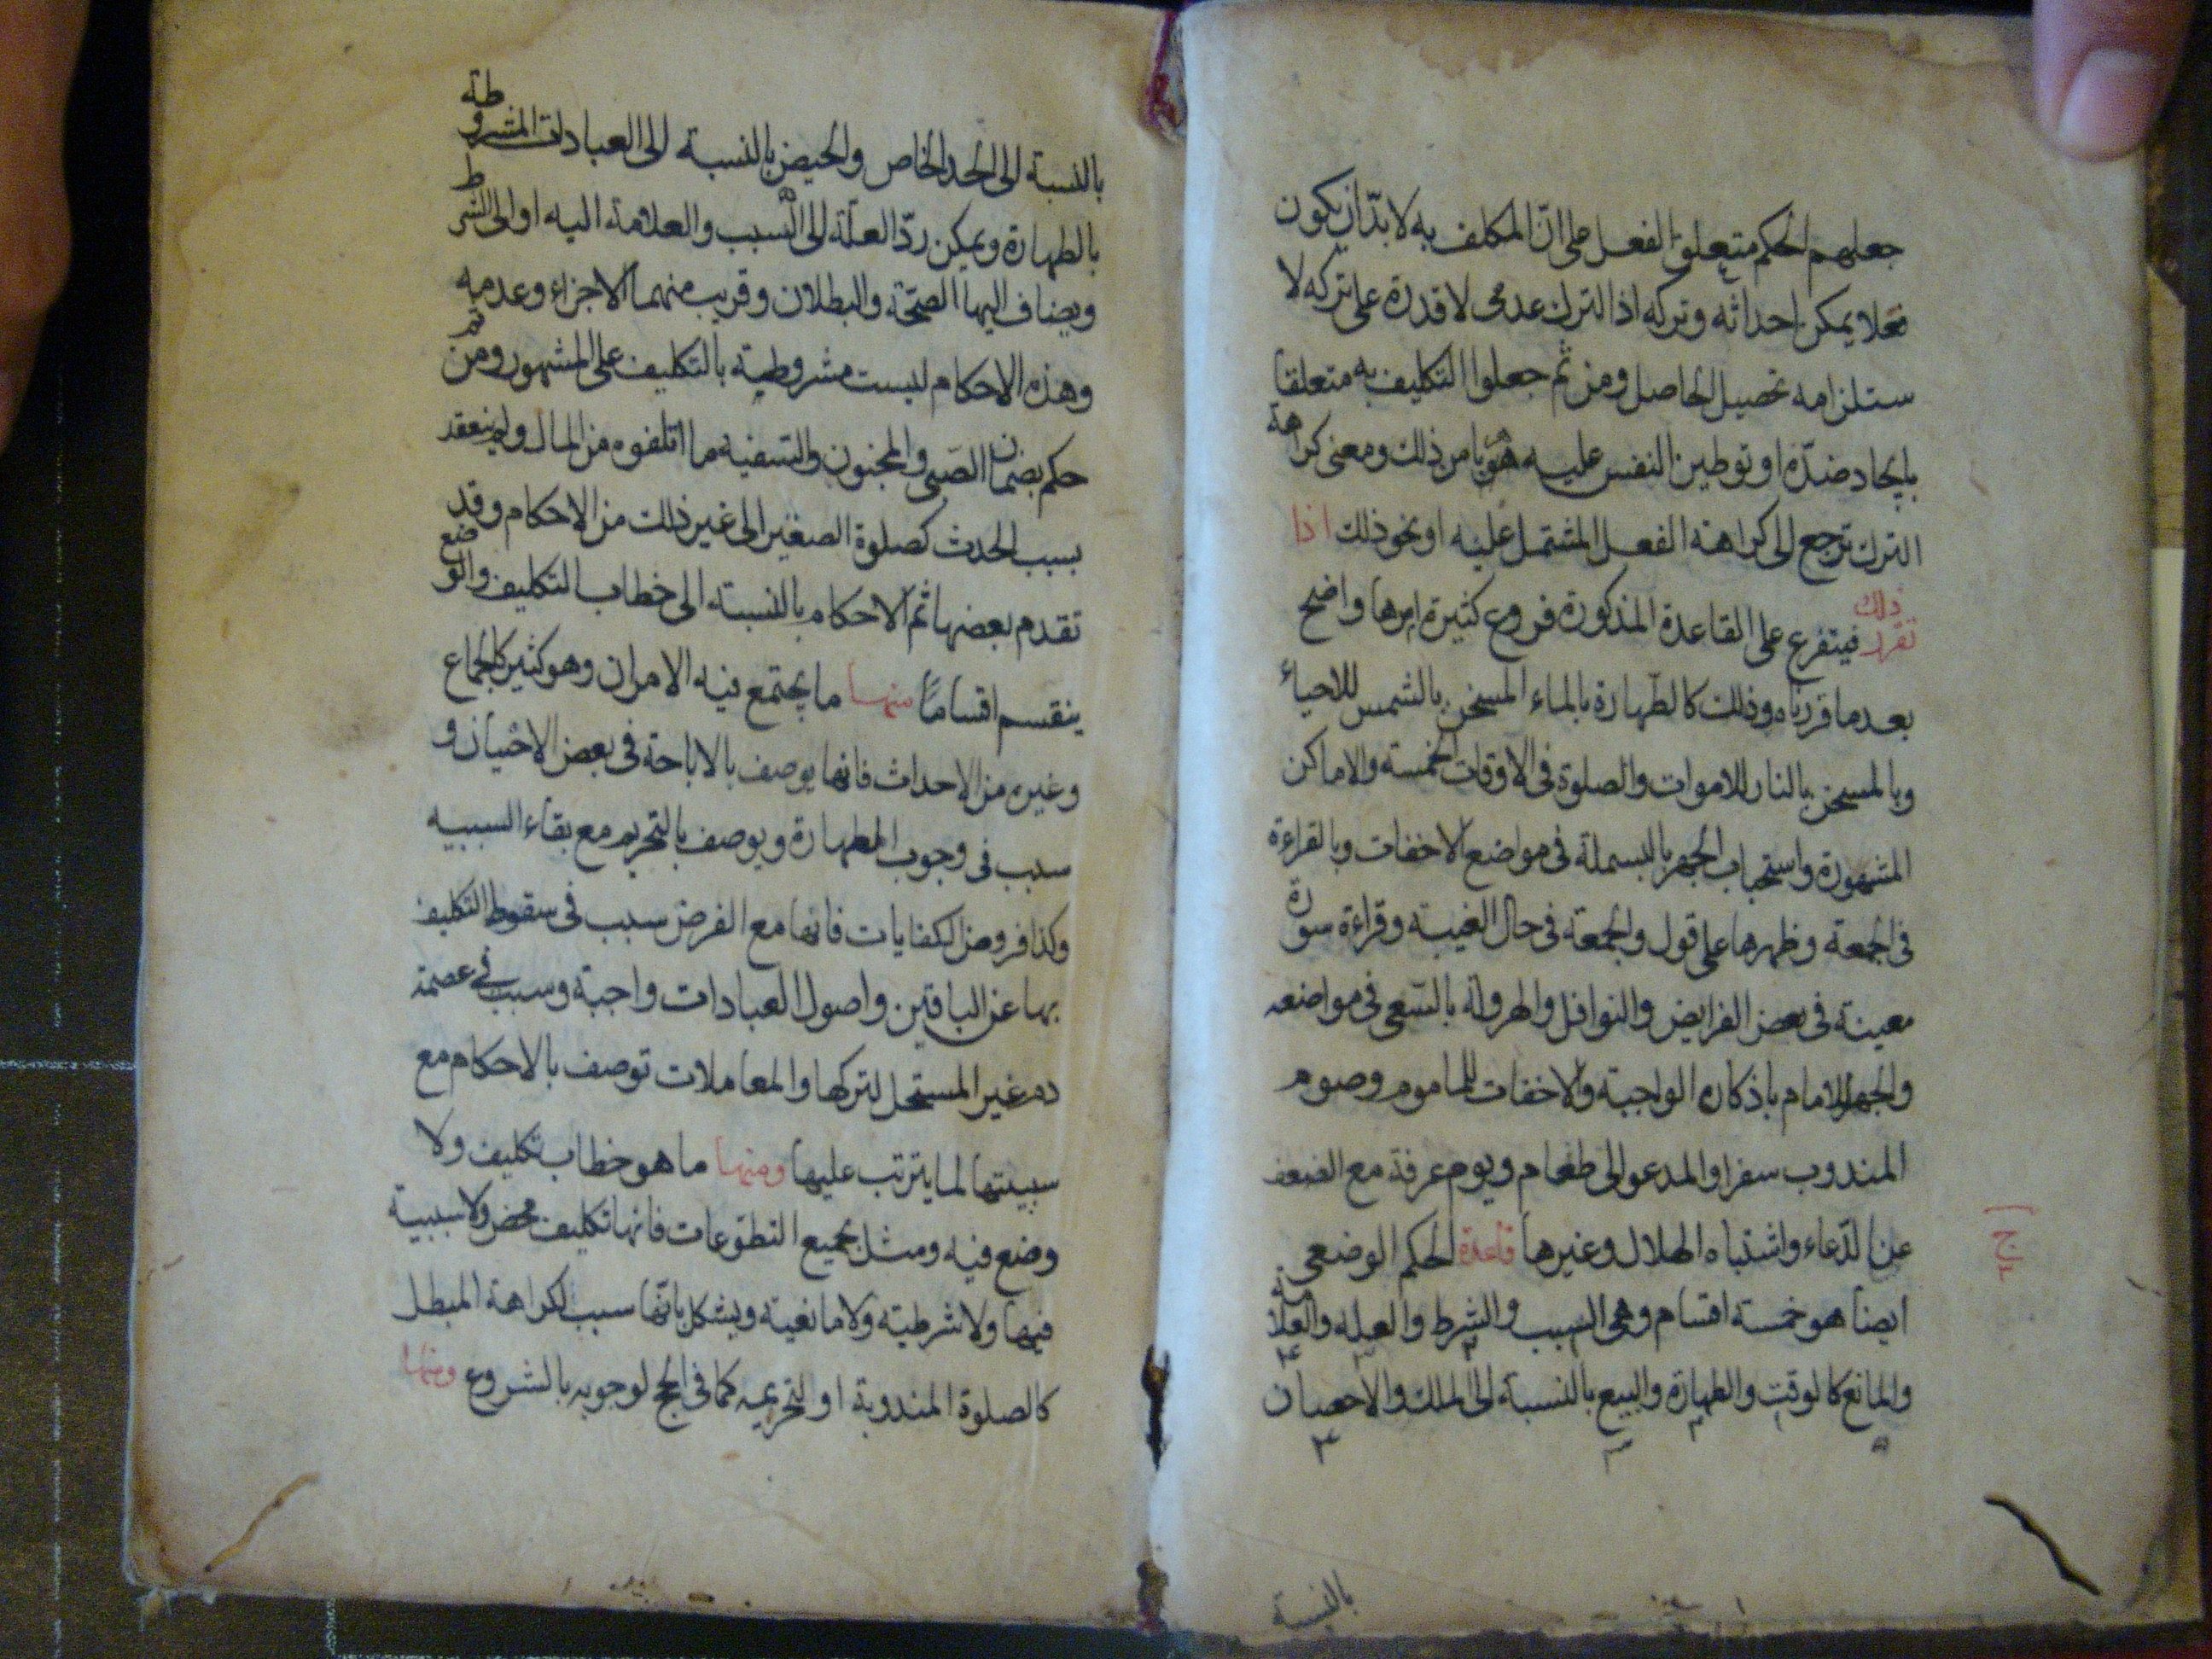 جعلهم الحكم متعلق الفعل على ان المكلف به لا بدّ ان يكون
فعلا يمكن احداثه وتركه اذ الترك عدمى لا قدرة على تركه لا
ستلزامه تحصيل الحاصل ومن ثم جعلوا التكليف به متعلقا
بايجاد ضدّه او توطين النفس عليه هربا من ذلك ومعنى كراهة
الترك ترجع الى كراهة الفعل المشتمل عليه او نحو ذلك اذا
تقرر ذلك فيتفرع على القاعدة المذكورة فروع كثيرة امرها واضح
بعد ما قررناه وذلك كالطهارة بالماء المسخن بالشمس للاحياء
وبالمسخن بالنار للاموات والصلوة فى الاوقات الخمسة والاماكن
المشهورة واستحباب الجهر بالبسملة فى مواضع الاخفات وبالقراءة
فى الجمعة وظهرها على قول والجمعة فى حال الغيبة وقراءة سورة
معينة فى بعض الفرايض والنوافل والهرولة بالسعى فى مواضعه
والجهر للامام باذكاره الواجبة والاخفات للماموم وصوم
المندوب سفرا والمدعو الى طعام ويوم عرفة مع الضعف
عن الدّعاء واشتباه الهلال وغيرها قاعدة الحكم الوضعى
ايضا هو خمسة اقسام وهى السبب والشرط والعلة والعلامة
والمانع كالوقت والطهارة والبيع بالنسبة الى الملك والاحصان
بالنسبة
بالنسبة الى الحد الخاص والحيض بالنسبة الى العبادات المشروطة
بالطهارة ويمكن ردّ العلة الى السبب والعلامة اليه او الى الشرط
ويضاف اليها الصحّة والبطلان وقريب منهما الاجزاء وعدمه
وهذه الاحكام ليست مشروطة بالتكليف على المشهور ومن ثم
حكم بضمان الصبى والمجنون والسفيه ما اتلفوه من المال ولم ينعقد
بسبب الحدث كصلوة الصغير الى غير ذلك من الاحكام وقد
تقدم بعضها ثم الاحكام بالنسبة الى خطاب التكليف والوضع
ينقسم اقساما منها ما يجتمع فيه الامران وهو كثير كالجماع
وغيره من الاحداث فانها يوصف بالاباحة فى بعض الاحيان و
سبب فى وجوب الطهارة ويوصف بالتحريم مع بقاء السببيه
وكذا فروض الكفايات فانها مع الفرض سبب فى سقوط التكليف
بها عن الباقين واصول العبادات واجبة وسبب فى عصمة
دم غير المستحل لتركها والمعاملات توصف بالاحكام مع
سببيتها لما يترتب عليها ومنها ما هو خطاب تكليف ولا
وضع فيه ومثل بجميع التطوعات فانها تكليف محض ولا سببية
فيها ولا شرطية ولا مانعية ويشكل بانها سبب لكراهة المبطل
كالصلوة المندوبة او التحريمه كما فى الحج لوجوبه بالشروع ومنها